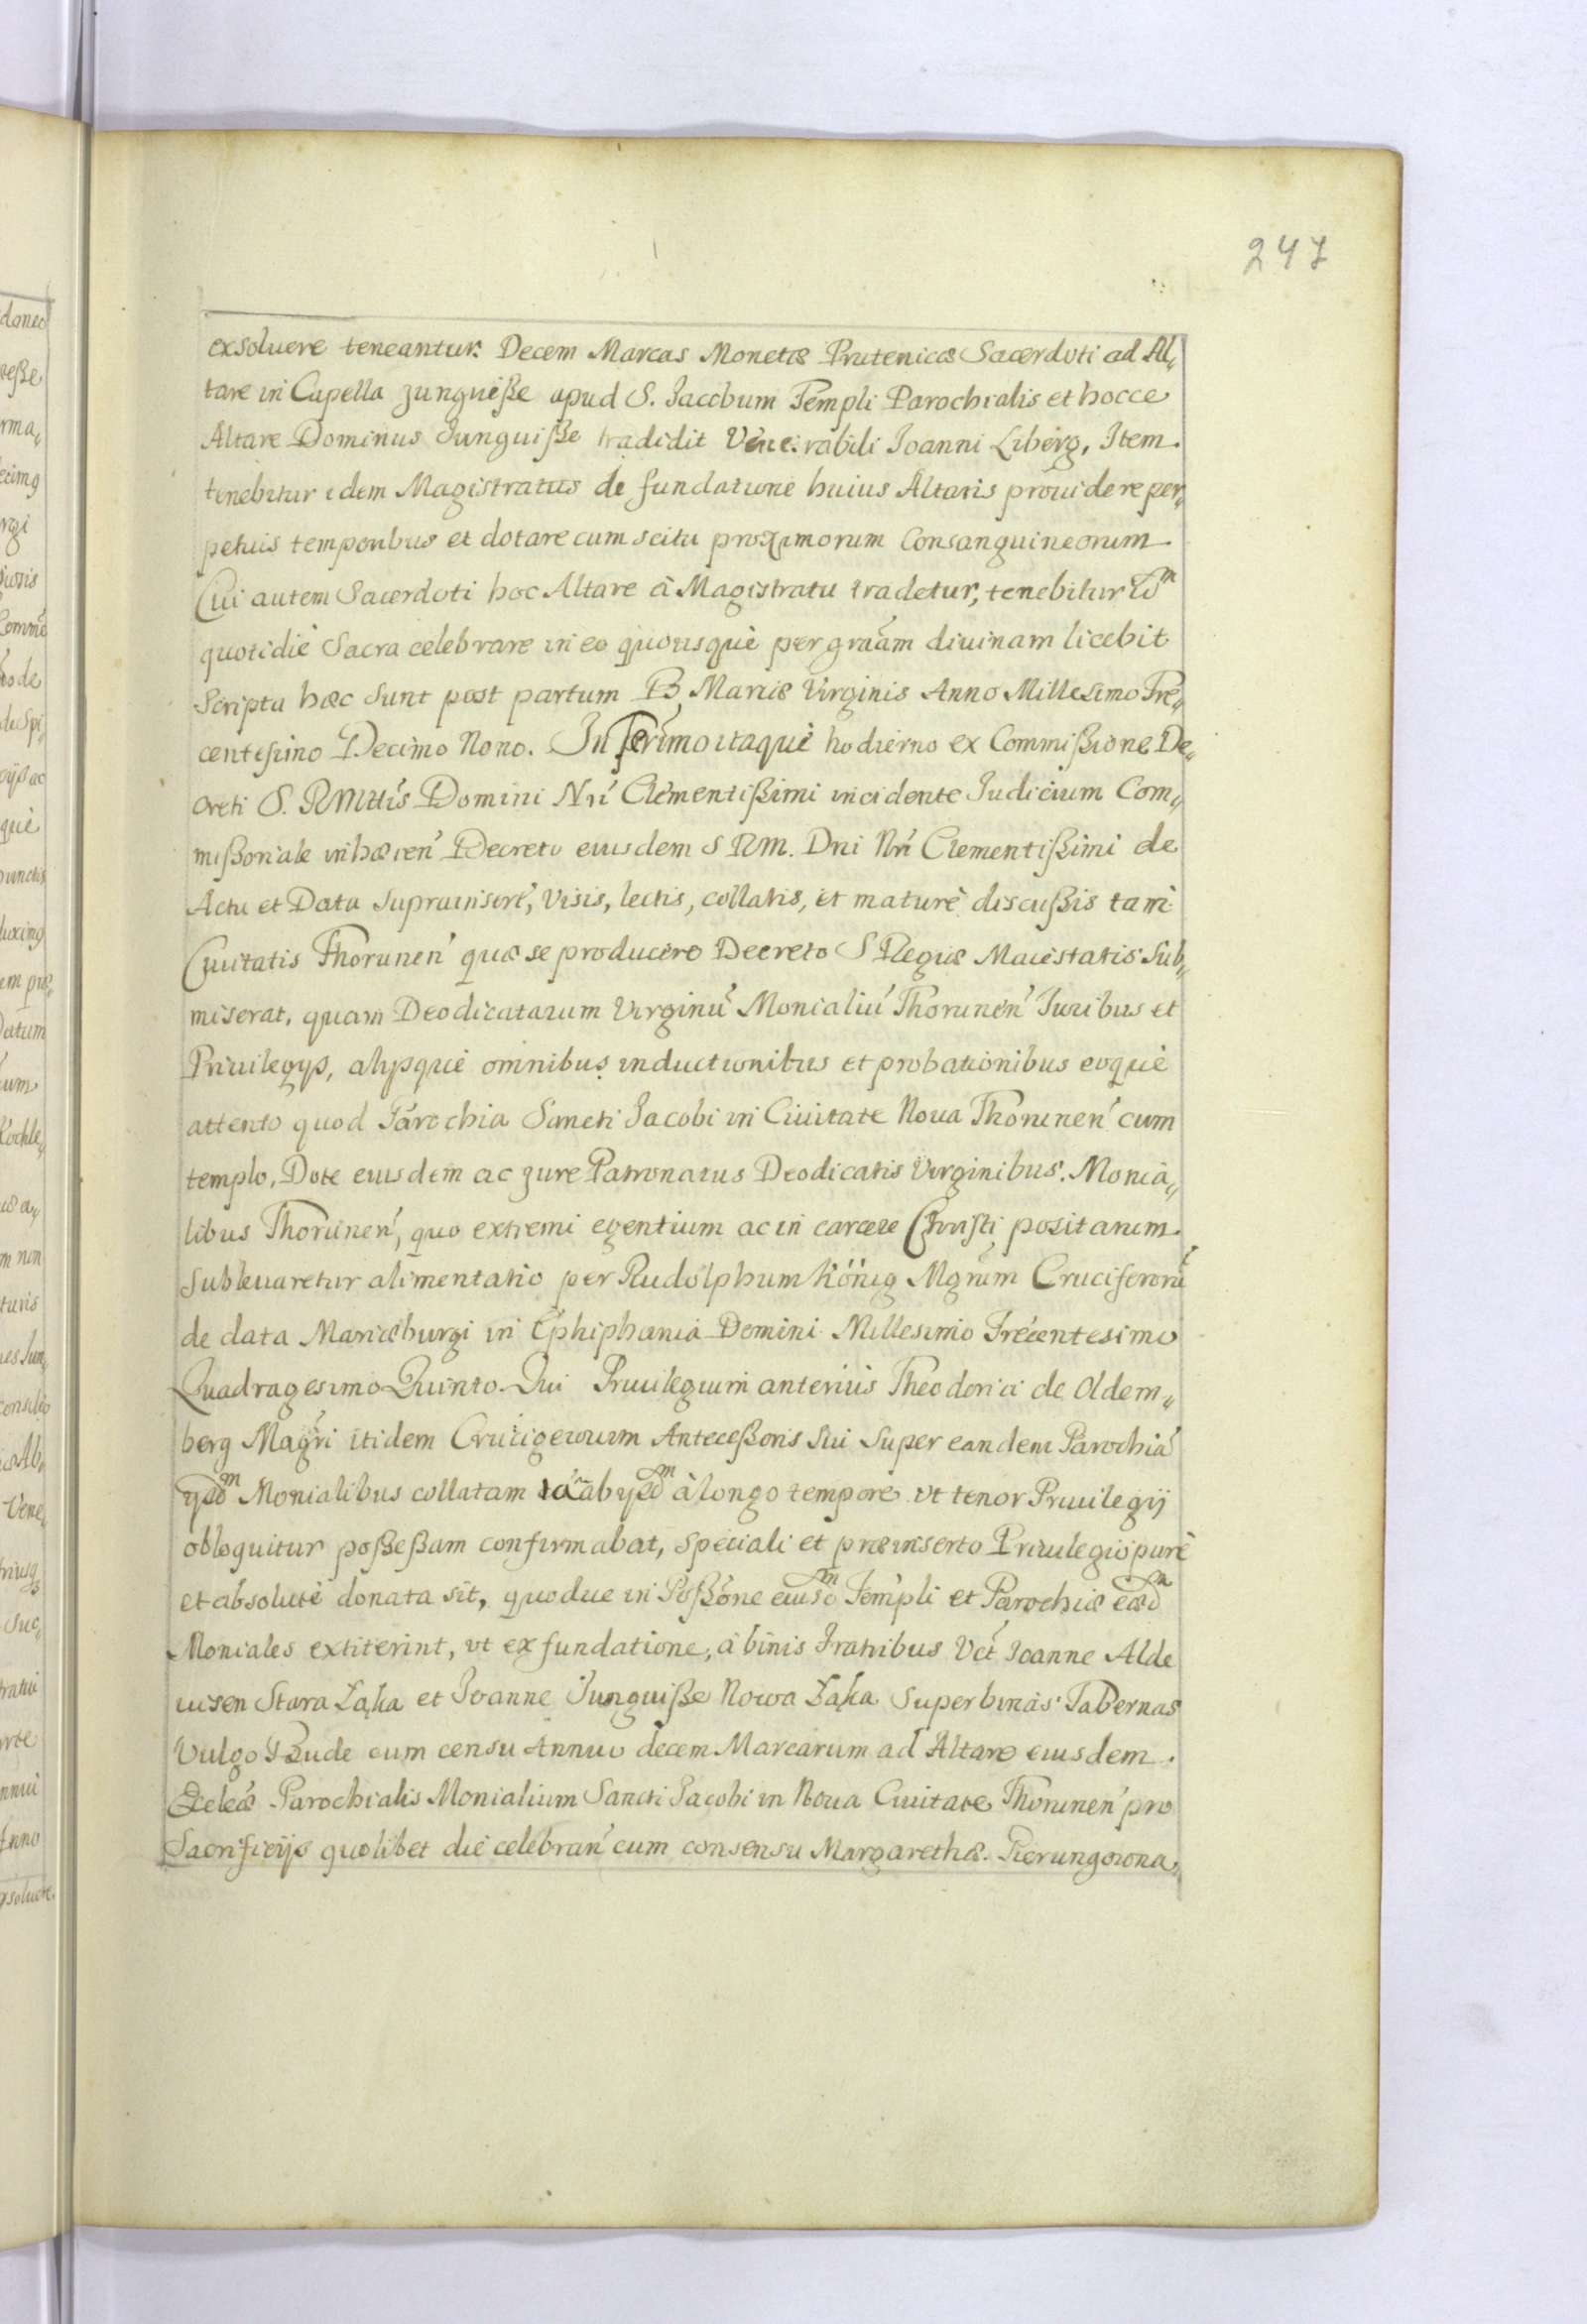 247
exsoluere teneantur. Decem Marcas Monetæ Prutenicæ Sacerdoti ad Al„
tare in Capella Junguiße apud S. Jacobum Templi Parochialis et hocce
Altare Dominus Junguiße tradidit Venerabili Joanni Liberg, Item
tenebitur idem Magistratus de fundatione huius Altaris prouidere per„
petuis temporibus et dotare cum scitu proximorum Consanguineorum
Cui autem Sacerdoti hoc Altare à Magistratu tradetur, tenebitur
quotidiè Sacra celebrare in eo quousquè per graãm diuinam licebit
Scripta hæc sunt post partum B. Mariæ Virginis Anno Millesimo Tre„
centesimo Decimo Nono. In itaquè hodierno ex Commißione De„
creti S. RMttis Domini Nri Clementißimi incidente Judicium Com„
mißoriale inhæren Decreto eiusdem S RM. Dni Nri Clementißimi de
Actu et Data suprainsert, visis, lectis, collatis, et maturè discußis tam
Ciuitatis Thorunen quæ se producere Decreto S Regiæ Maiestatis sub„
miserat, quam Deodicatarum Virginũ Monialiũ Thorunen Juribus et
Priuilegys, alysquè omnibus inductionibus et probationibus eoquè
attento quod Parochia Sancti Jacobi in Ciuitate Noua Thorunen cum
templo, Dote eiusdem ac jure Patronatus Deodicatis Virginibus. Monia„
libus Thorunen, quo extremi egentium ac in carcere Christi positarum
subleuaretur alimentatio per Rudolphum König Mgrum Cruciferorũ
de data Mariæburgi in Ephiphania Domini Millesimo Trecentesimo
Quadragesimo Quinto. Qui Priuilegium anterius Theodorici de Oldem„
berg Magri itidem Crucigerorum Anteceßoris sui super eandem Parochiã
ysdm Monialibus collatam ab ysdm à longo tempore vt tenor Priuilegij
obloquitur poßeßam confirmabat, speciali et præinserto Priuilegio purè
et absolutè donata sit, quodue in Poßone eiusdm Templi et Parochiæ eædm
Moniales extiterint, vt ex fundatione, à binis Fratribus Vct Joanne Alde
uisen Stara Łąka et Joanne Junguiße Nowa Łąka super binas Tabernas
Vulgo Bude cum censu Annuo decem Marcarum ad Altare eiusdem
Eccleæ Parochialis Monialium Sancti Jacobi in Noua Ciuitate Thorunen pro
Sacrificijs quolibet die celebran cum consensu Margarethæ. Pierungowna,